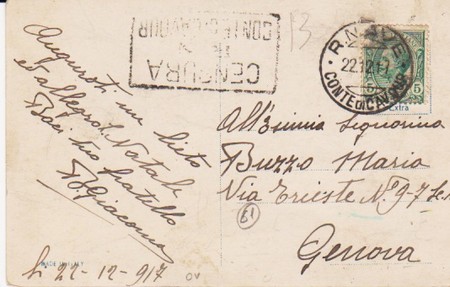 Auguroti un lieto
ed allegro Natale
Baci tuo fratello
Giacomo
lì 22-12-917
CENSURA
CONTE DI CAVOUR
R. NAVE
22.12.17
CONTE DI CAVOUR
5
Extra
All'Esimia Signorina
Buzzo Maria
Via Trieste N. 9-7
Genova
61
13
MADE IN ITALY